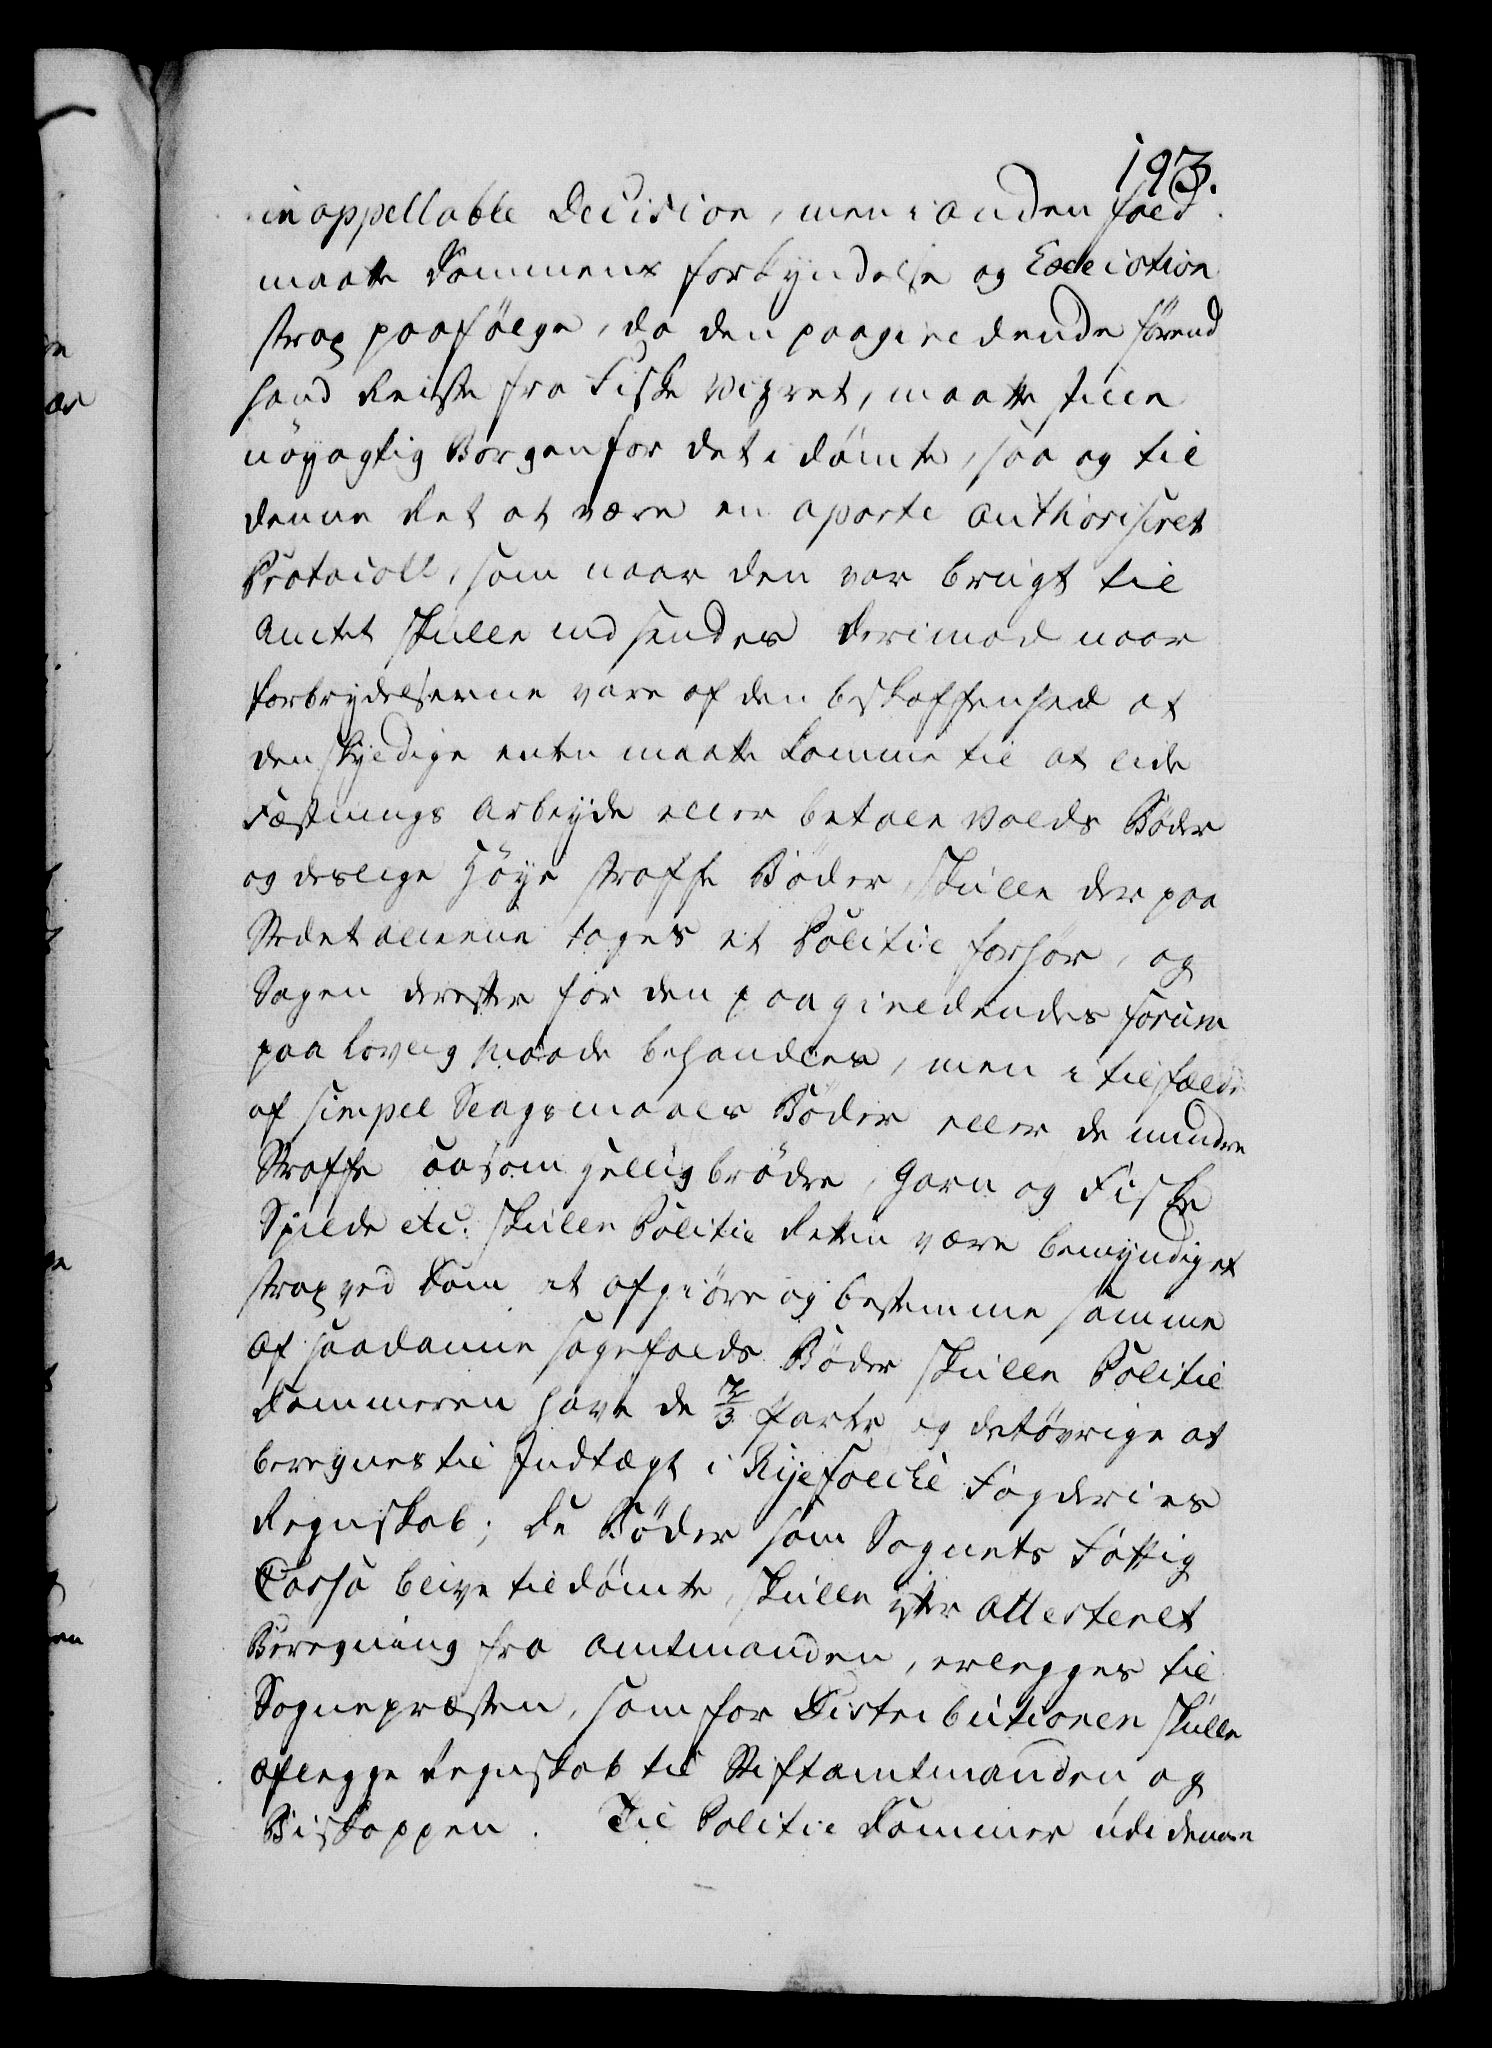 193.
inappellable Decision, men i anden fald
maatte Dommens forkyndelse og Execution
strax paafølge, da den paagieldende førend
hand Reiste fra Fiske Weyret, maatte stille
nöyagtig Borgen for det idömte, saa og til
denne Ret at være en aparte authoriseret
Protocoll, som naar den var brugt til
Amtet skulle indsendes derimod naar
forbrydelserne vare af den beskaffenhed at
den skyldige enten maatte komme til at lide
Fæstnings Arbeyde eller betale Volds Böder
og deslige Höye straffe Böder, skulle der paa
Stedet alleene tages et Politie forhör, og
Sagen derefter for den paagieldendes forum
paa lovlig Maade behandles, men i tilfælde
af simpel Slagsmaals Böder eller de mindre
Straffe saasom Helligbröde, Garn og Fiske
Spilde etc. skulle Politie Retten være bemyndiget
strax ved Dom at afgiöre og bestemme samme
Af saadanne sagefalds Böder skulle Politie
Dommeren have de 2/3 Parte og det øvrige at
beregnes til Indtægt i Ryefylke Fogderies
Regnskab; De Böder som Sognets Fattig
Cassa blive tildömte, skulle efter Attesteret
Beregning fra Amtmanden, erlegges til
Sognepræsten, som for Distributionen skulle
aflegge Regnskab til Stiftamtmanden og
Biskoppen. Til Politie Dommer udi denne